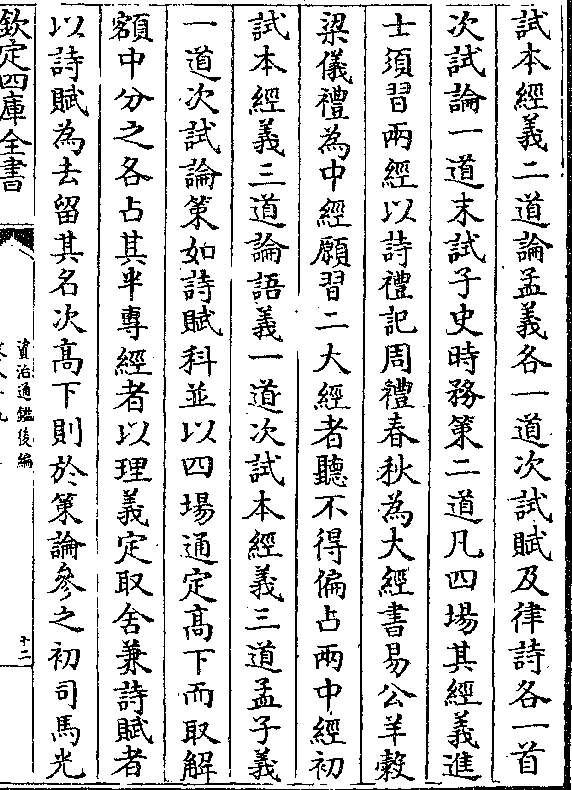 試本經義二道論孟義各一道次試賦及律詩各一首
次試論一道末試子史時務策二道凡四場其經義進
士須習兩經以詩禮記周禮春秋為大經書易公羊穀
梁儀禮為中經願習二大經者聽不得偏占兩中經初
試本經義三道論語義一道次試本經義三道孟子義
一道次試論策如詩賦科並以四場通定高下而取解
額中分之各占其半專經者以理義定取舍兼詩賦者
以詩賦為去留其名次高下則於策論參之初司馬光
欽定四庫全書
資治通鑑後編
十二